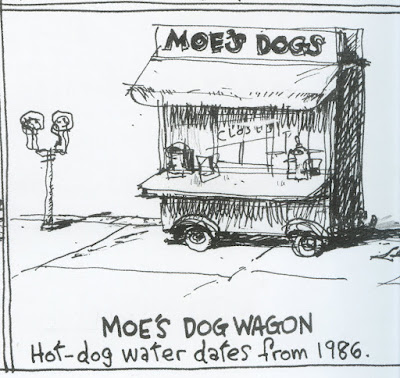 MOE'S DOGS
CLOSED
MOE'S DOG WAGON
Hot-dog water dates from 1986.